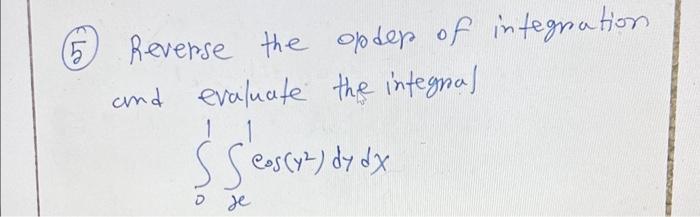 5 Reverse the order of integration
and evaluate the integral
∫₀¹ ∫ₓ¹ cos(y²) dy dx